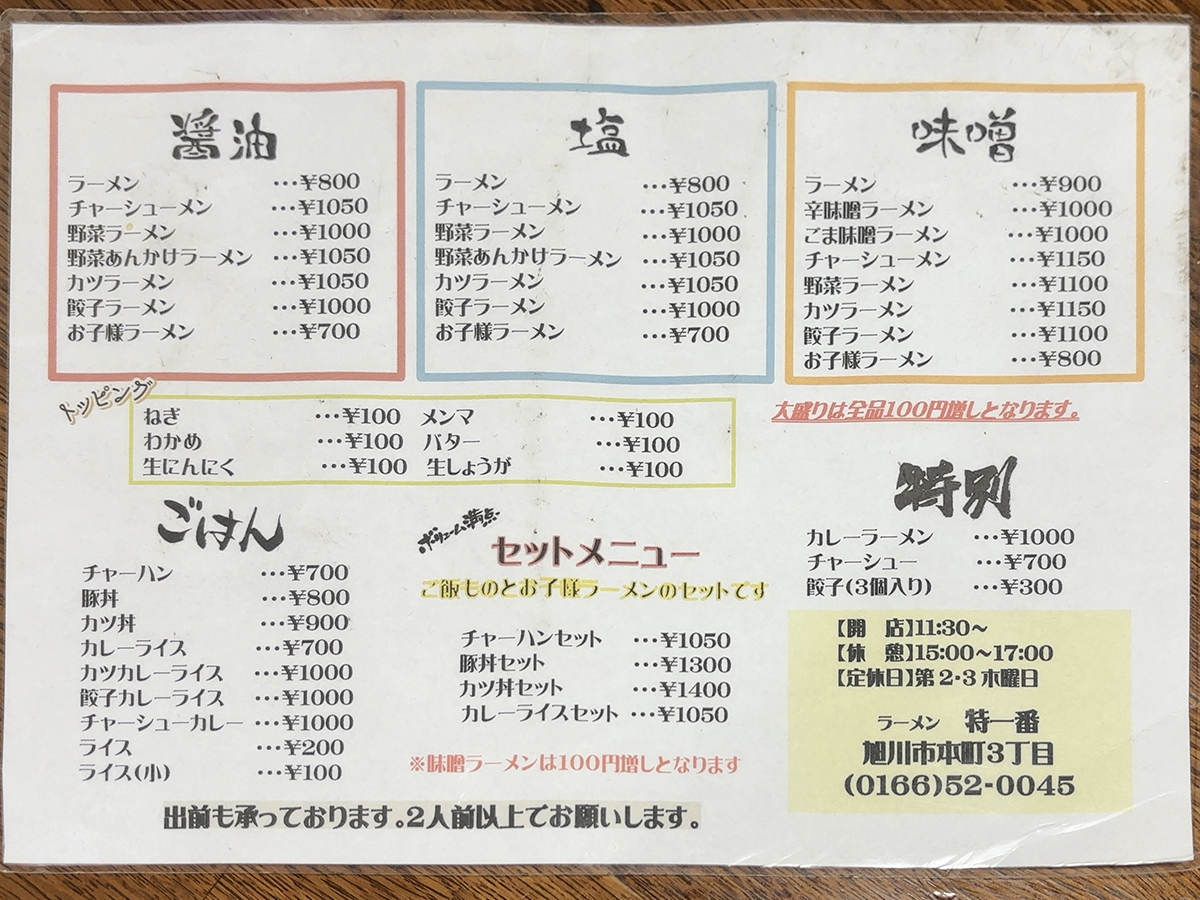 醤油
ラーメン …¥800
チャーシューメン …¥1050
野菜ラーメン …¥1000
野菜あんかけラーメン …¥1050
カツラーメン …¥1050
餃子ラーメン …¥1000
お子様ラーメン …¥700
塩
ラーメン …¥800
チャーシューメン …¥1050
野菜ラーメン …¥1000
野菜あんかけラーメン …¥1050
カツラーメン …¥1050
餃子ラーメン …¥1000
お子様ラーメン …¥700
味噌
ラーメン …¥900
辛味噌ラーメン …¥1000
ごま味噌ラーメン …¥1000
チャーシューメン …¥1150
野菜ラーメン …¥1100
カツラーメン …¥1150
餃子ラーメン …¥1100
お子様ラーメン …¥800
大盛りは全品100円増しとなります。
トッピング
ねぎ …¥100 メンマ …¥100
わかめ …¥100 バター …¥100
生にんにく …¥100 生しょうが …¥100
ごはん
チャーハン …¥700
豚丼 …¥800
カツ丼 …¥900
カレーライス …¥700
カツカレーライス …¥1000
餃子カレーライス …¥1000
チャーシューカレー …¥1000
ライス …¥200
ライス(小) …¥100
ボリューム満点
セットメニュー
ご飯ものとお子様ラーメンのセットです
チャーハンセット …¥1050
豚丼セット …¥1300
カツ丼セット …¥1400
カレーライスセット …¥1050
※味噌ラーメンは100円増しとなります
特別
カレーラーメン …¥1000
チャーシュー …¥700
餃子(3個入り) …¥300
【開 店】11:30～
【休 憩】15:00～17:00
【定休日】第2・3木曜日
ラーメン 特一番
旭川市本町3丁目
(0166)52-0045
出前も承っております。2人前以上でお願いします。